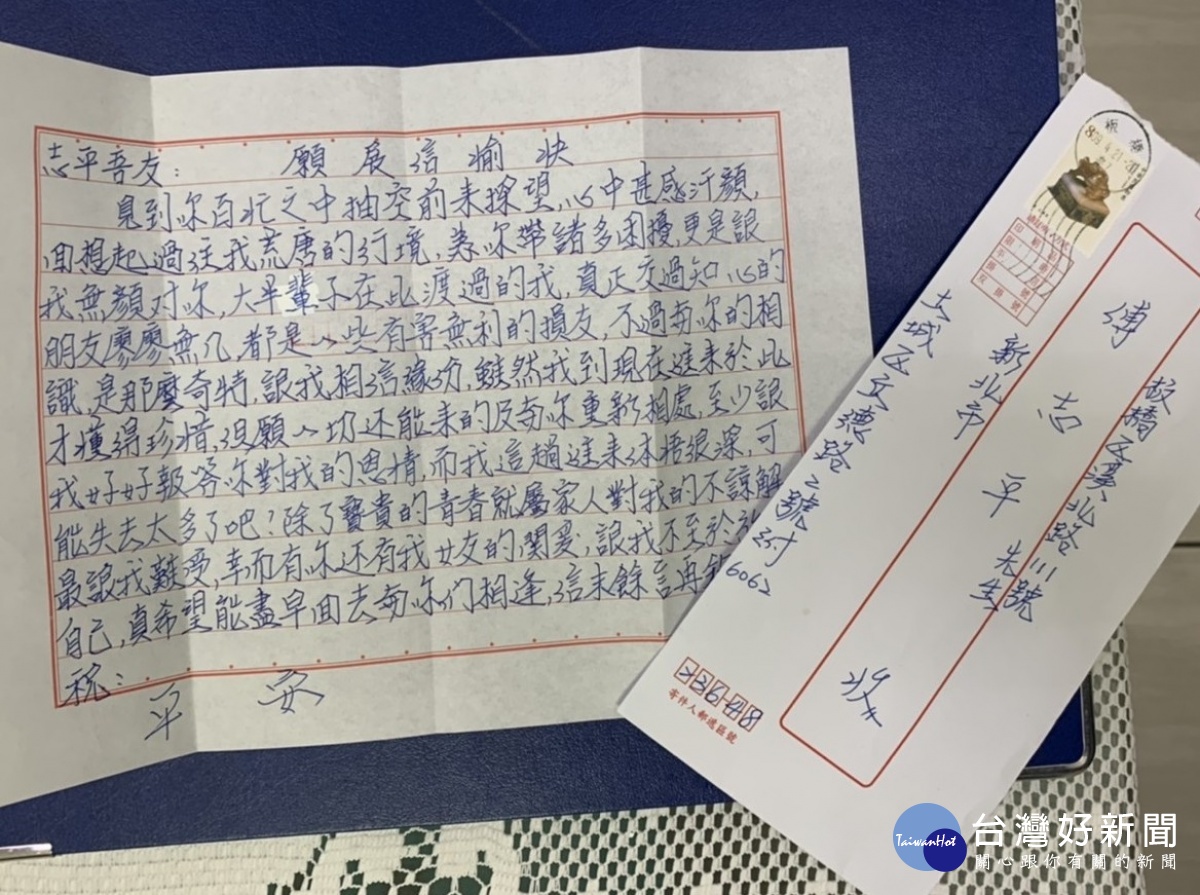 志平吾友： 願展信愉快
見到你百忙之中抽空前來探望,心中甚感汗顏,
回想起過往我荒唐的行境,為你帶諸多困擾,更是讓
我無顏对你,大半輩子在此渡過的我,真正交過知心的
朋友廖廖無几,都是一些有害無利的損友,不過与你的相
識,是那麼奇特,讓我相信緣份,雖然我到現在進來於此
才懂得珍惜,但願一切还能來的及与你重新相處,至少讓
我好好報答你對我的恩情,而我這趟進來体悟很深,可
能失去太多了吧?除了寶貴的青春就屬家人對我的不諒解
最讓我難受,幸而有你还有我女友的関愛,讓我不至於
自己,真希望能盡早回去与你们相逢,信末餘言再
祝：
平 安
板橋区漢北路川號
傅志平先生 收
新北市
土城区立德路2號附
6062
寄件人郵遞區號
台灣好新聞
TaiwanHot
關心跟你有關的新聞